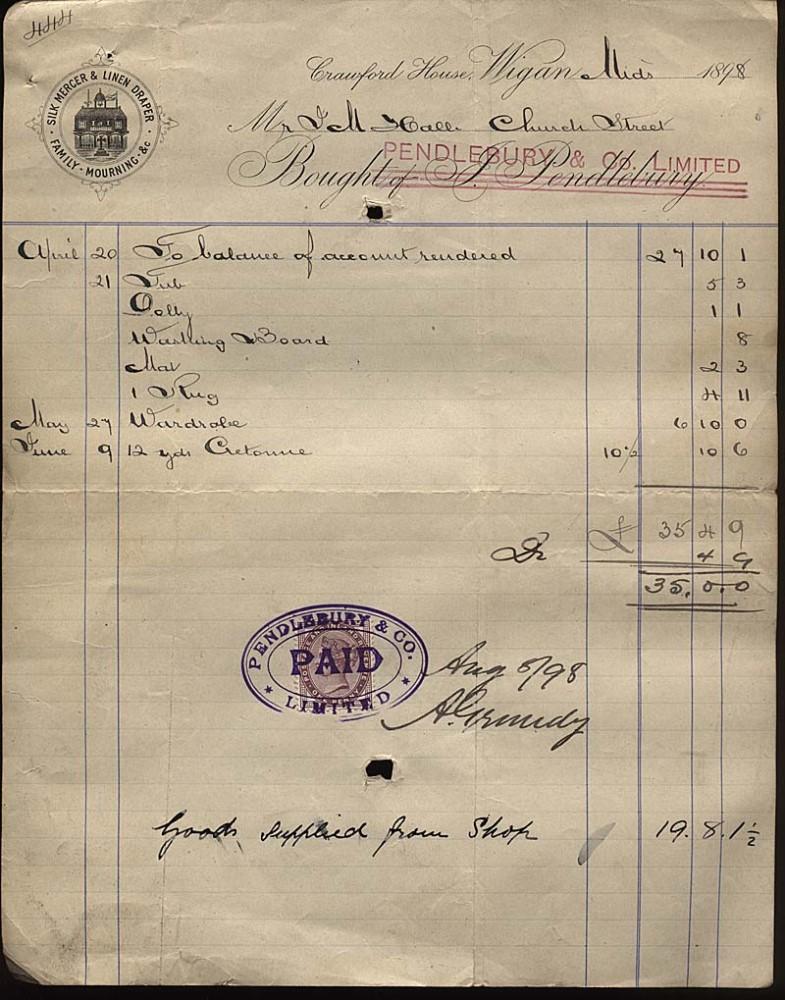 444
SILK MERCER & LINEN DRAPER
· FAMILY · MOURNING · &c ·
Crawford House, Wigan Mids 1898
Mr J M Hall Church Street
PENDLEBURY & CO. LIMITED
Bought of J. Pendlebury
April 20 To balance of account rendered 27 10 1
21 Tub 5 3
Dolly 1 1
Washing Board 8
Mat 2 3
1 Rug 4 11
May 27 Wardrobe 6 10 0
June 9 12 yds Cretonne 10½ 10 6
£ 35 4 9
4 9
35. 0. 0
PENDLEBURY & CO.
PAID
LIMITED
Aug 5/98
Goods supplied from Shop 19. 8. 1½